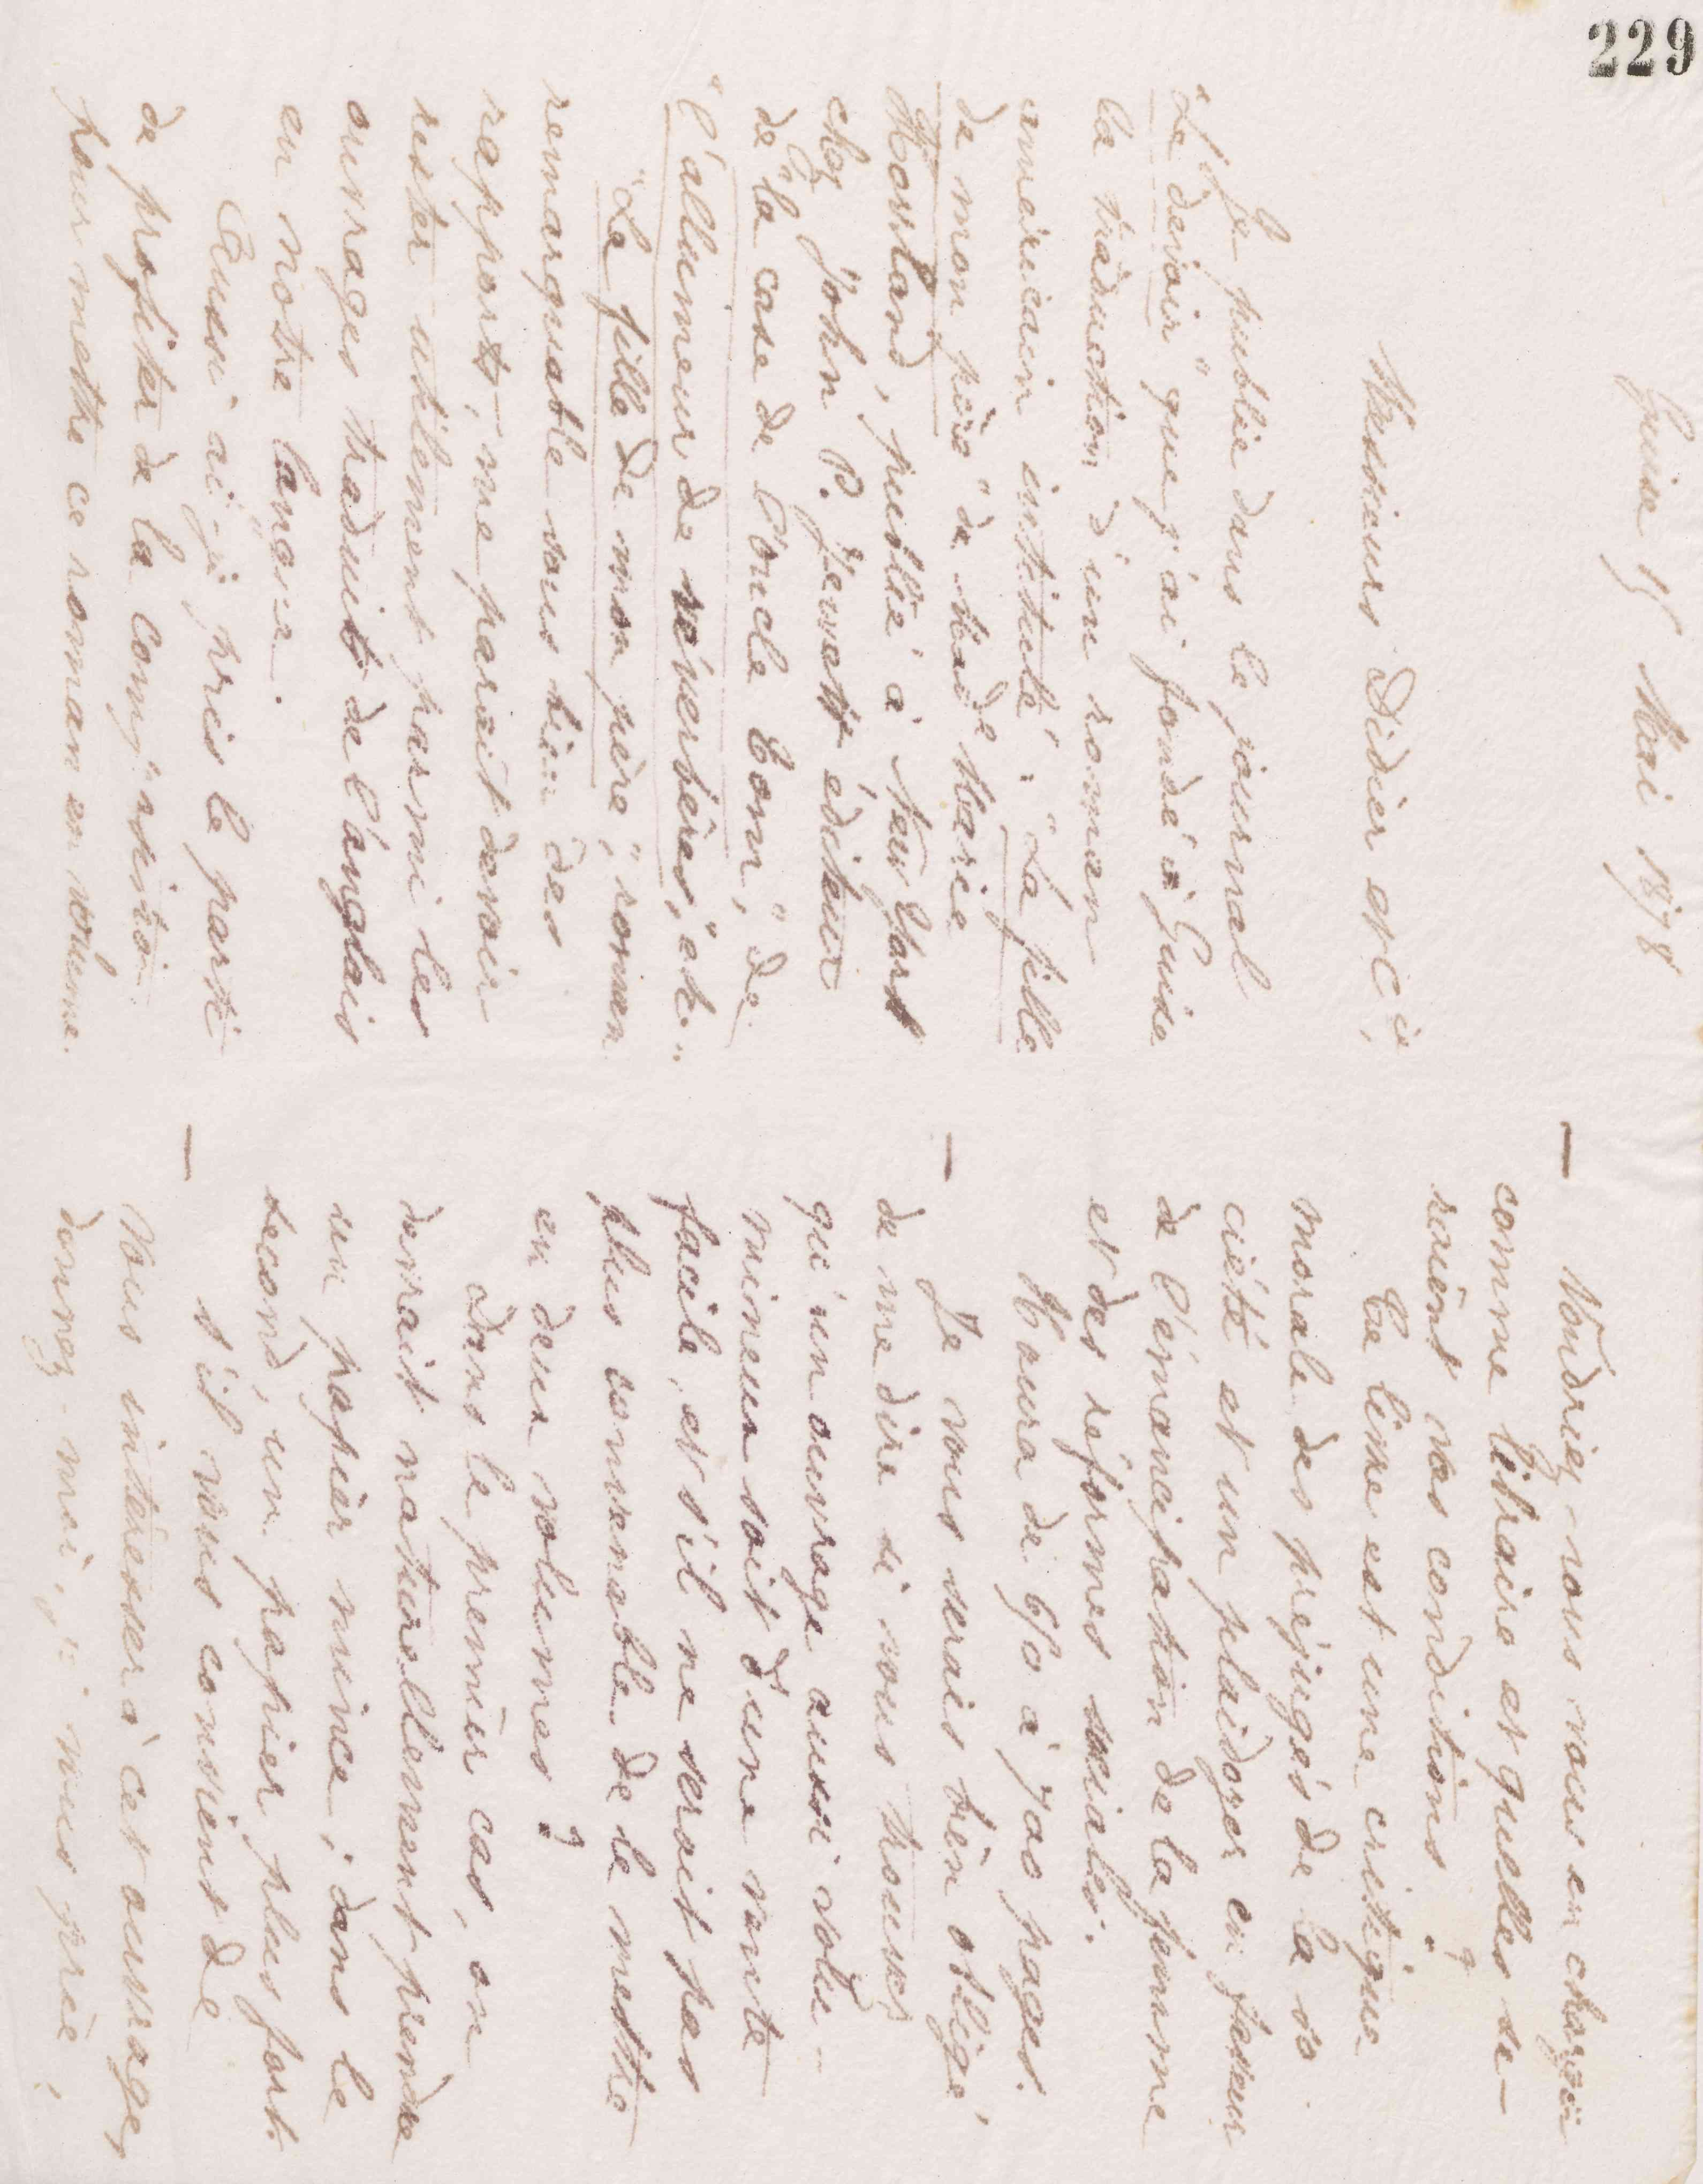 229
Guise 15 Mai 1878
Messieurs Didier et Cie,
Je publie dans le journal
"Le devoir" que j'ai fondé à Guise
la traduction d'un roman
américain intitulé: "La fille
de mon père" de Made Marie
Howland, publié à New York
chez John P. Jewett éditeur
de "la case de l'oncle Tom", de
"l'allumeur de réverbères", etc..
"La fille de mon père", roman
remarquable sous bien des
rapports, me parait devoir
rester utilement parmi les
ouvrages traduits de l'anglais
en notre langue.
Aussi ai-je pris le parti
de profiter de la composition
pour mettre ce roman en volume.
— Voudriez-vous vous en charger
comme libraire et quelles se-
raient vos conditions?
Ce livre est une critique
morale des préjugés de la so
ciété et un plaidoyer en faveur
de l'émancipation de la femme
et des réformes sociales.
Il aura de 650 à 700 pages.
— Je vous serais bien obligé
de me dire si vous trouvez
qu'un ouvrage aussi volu-
mineux soit d'une vente
facile, et s'il ne serait pas
plus convenable de le mettre
en deux volumes?
Dans le premier cas, on
devrait naturellement prendre
un papier mince; dans le
second, un papier plus fort.
— S'il vous convient de
vous intéresser à cet ouvrage,
donnez-moi, je vous prie,